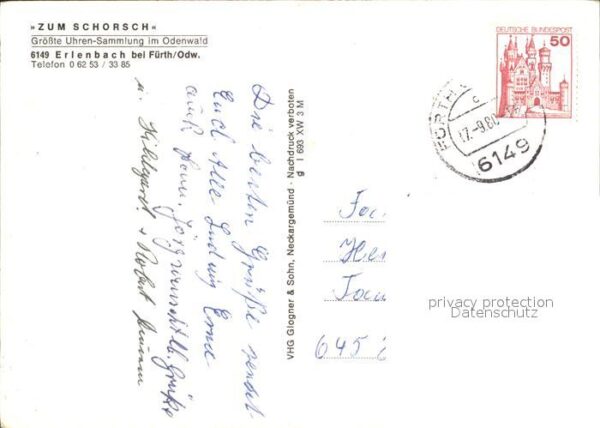 »ZUM SCHORSCH«
Größte Uhren-Sammlung im Odenwald
6149 Erlenbach bei Fürth/Odw.
Telefon 0 62 53 / 33 85
DEUTSCHE BUNDESPOST
50
FÜRTH
c
17.-9.80
6149
VHG Glogner & Sohn, Neckargemünd · Nachdruck verboten
g I 693 XW 3 M
Die besten Grüße sendet
Euch Alle Ludwig Erna
auch Fam. Jörg wünscht lb. Grüße
u. Hildegard + Robert
Fa
He
645
privacy protection
Datenschutz